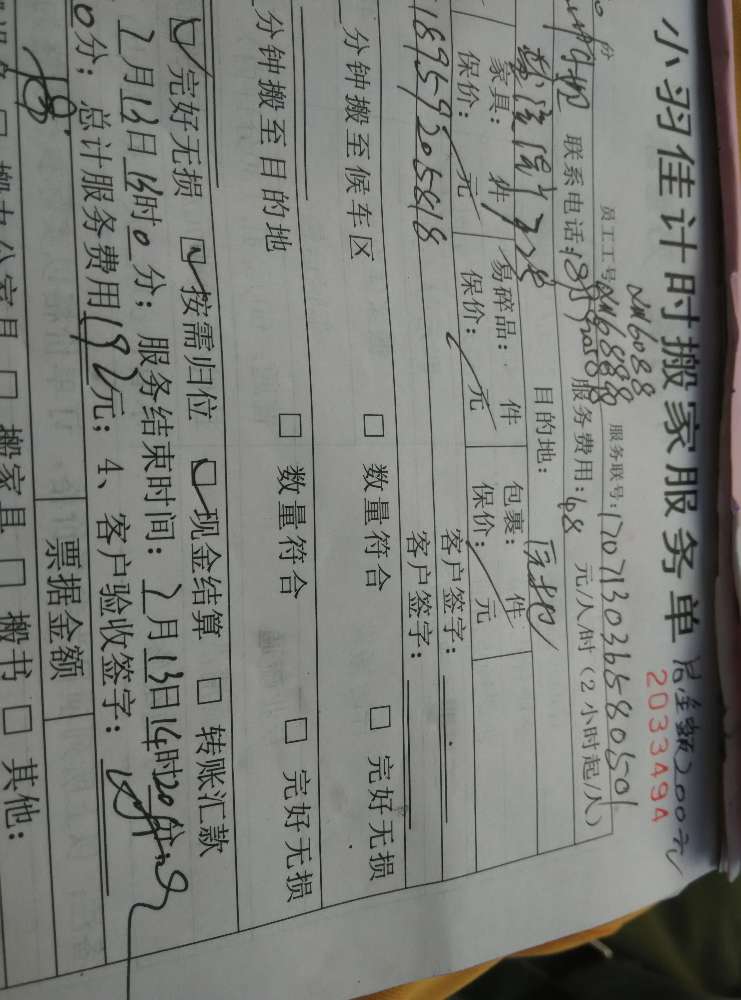 小羽佳计时搬家服务单 总金额200元
2033494
员工工号 XM6088 服务联号:170713036580501
XM6888
联系电话: 服务费用:48 元/人/时(2小时起/人)
目的地: 原地
家具: 件 易碎品: 件 包裹: 件
保价: 元 保价: 元 保价: 元
18959205818 客户签字:
客户签字:
分钟搬至候车区 □ 数量符合 □ 完好无损
分钟搬至目的地 □ 数量符合 □ 完好无损
☑ 完好无损 ☑ 按需归位 ☑ 现金结算 □ 转账汇款
7月13日 时0分; 服务结束时间: 7月13日14时20分;
0分; 总计服务费用192元; 4、客户验收签字:
票据金额
□ 搬办公家具 □ 搬家具 □ 搬书 □ 其他: